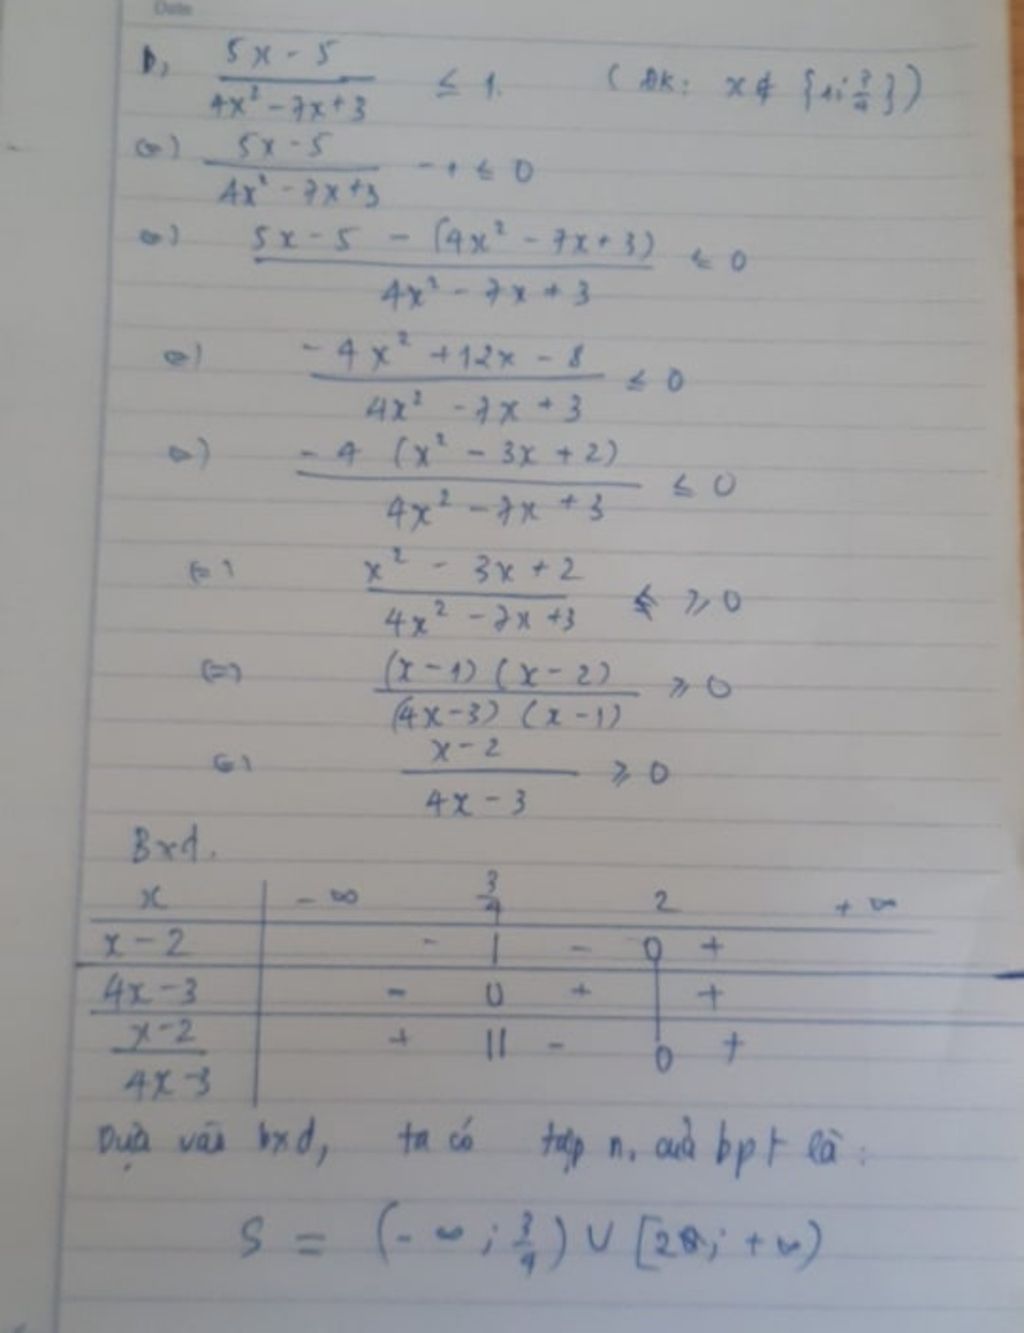 Date
b, (5x - 5)/(4x² - 7x + 3) ≤ 1. (ĐK: x ∉ {1; 3/4})
(=) (5x - 5)/(4x² - 7x + 3) - 1 ≤ 0
(=) (5x - 5 - (4x² - 7x + 3))/(4x² - 7x + 3) ≤ 0
(=) (-4x² + 12x - 8)/(4x² - 7x + 3) ≤ 0
(=) (-4 (x² - 3x + 2))/(4x² - 7x + 3) ≤ 0
(=) (x² - 3x + 2)/(4x² - 7x + 3) ≥ 0
(=) ((x - 1) (x - 2))/((4x - 3) (x - 1)) ≥ 0
(=) (x - 2)/(4x - 3) ≥ 0
Bxd.
x | -∞ 3/4 2 +∞
x - 2 | - | - 0 +
4x - 3 | - 0 + | +
(x - 2)/(4x - 3) | + || - 0 +
Dựa vào bxd, ta có tập n. của bpt là:
S = (-∞; 3/4) ∪ [2; +∞)